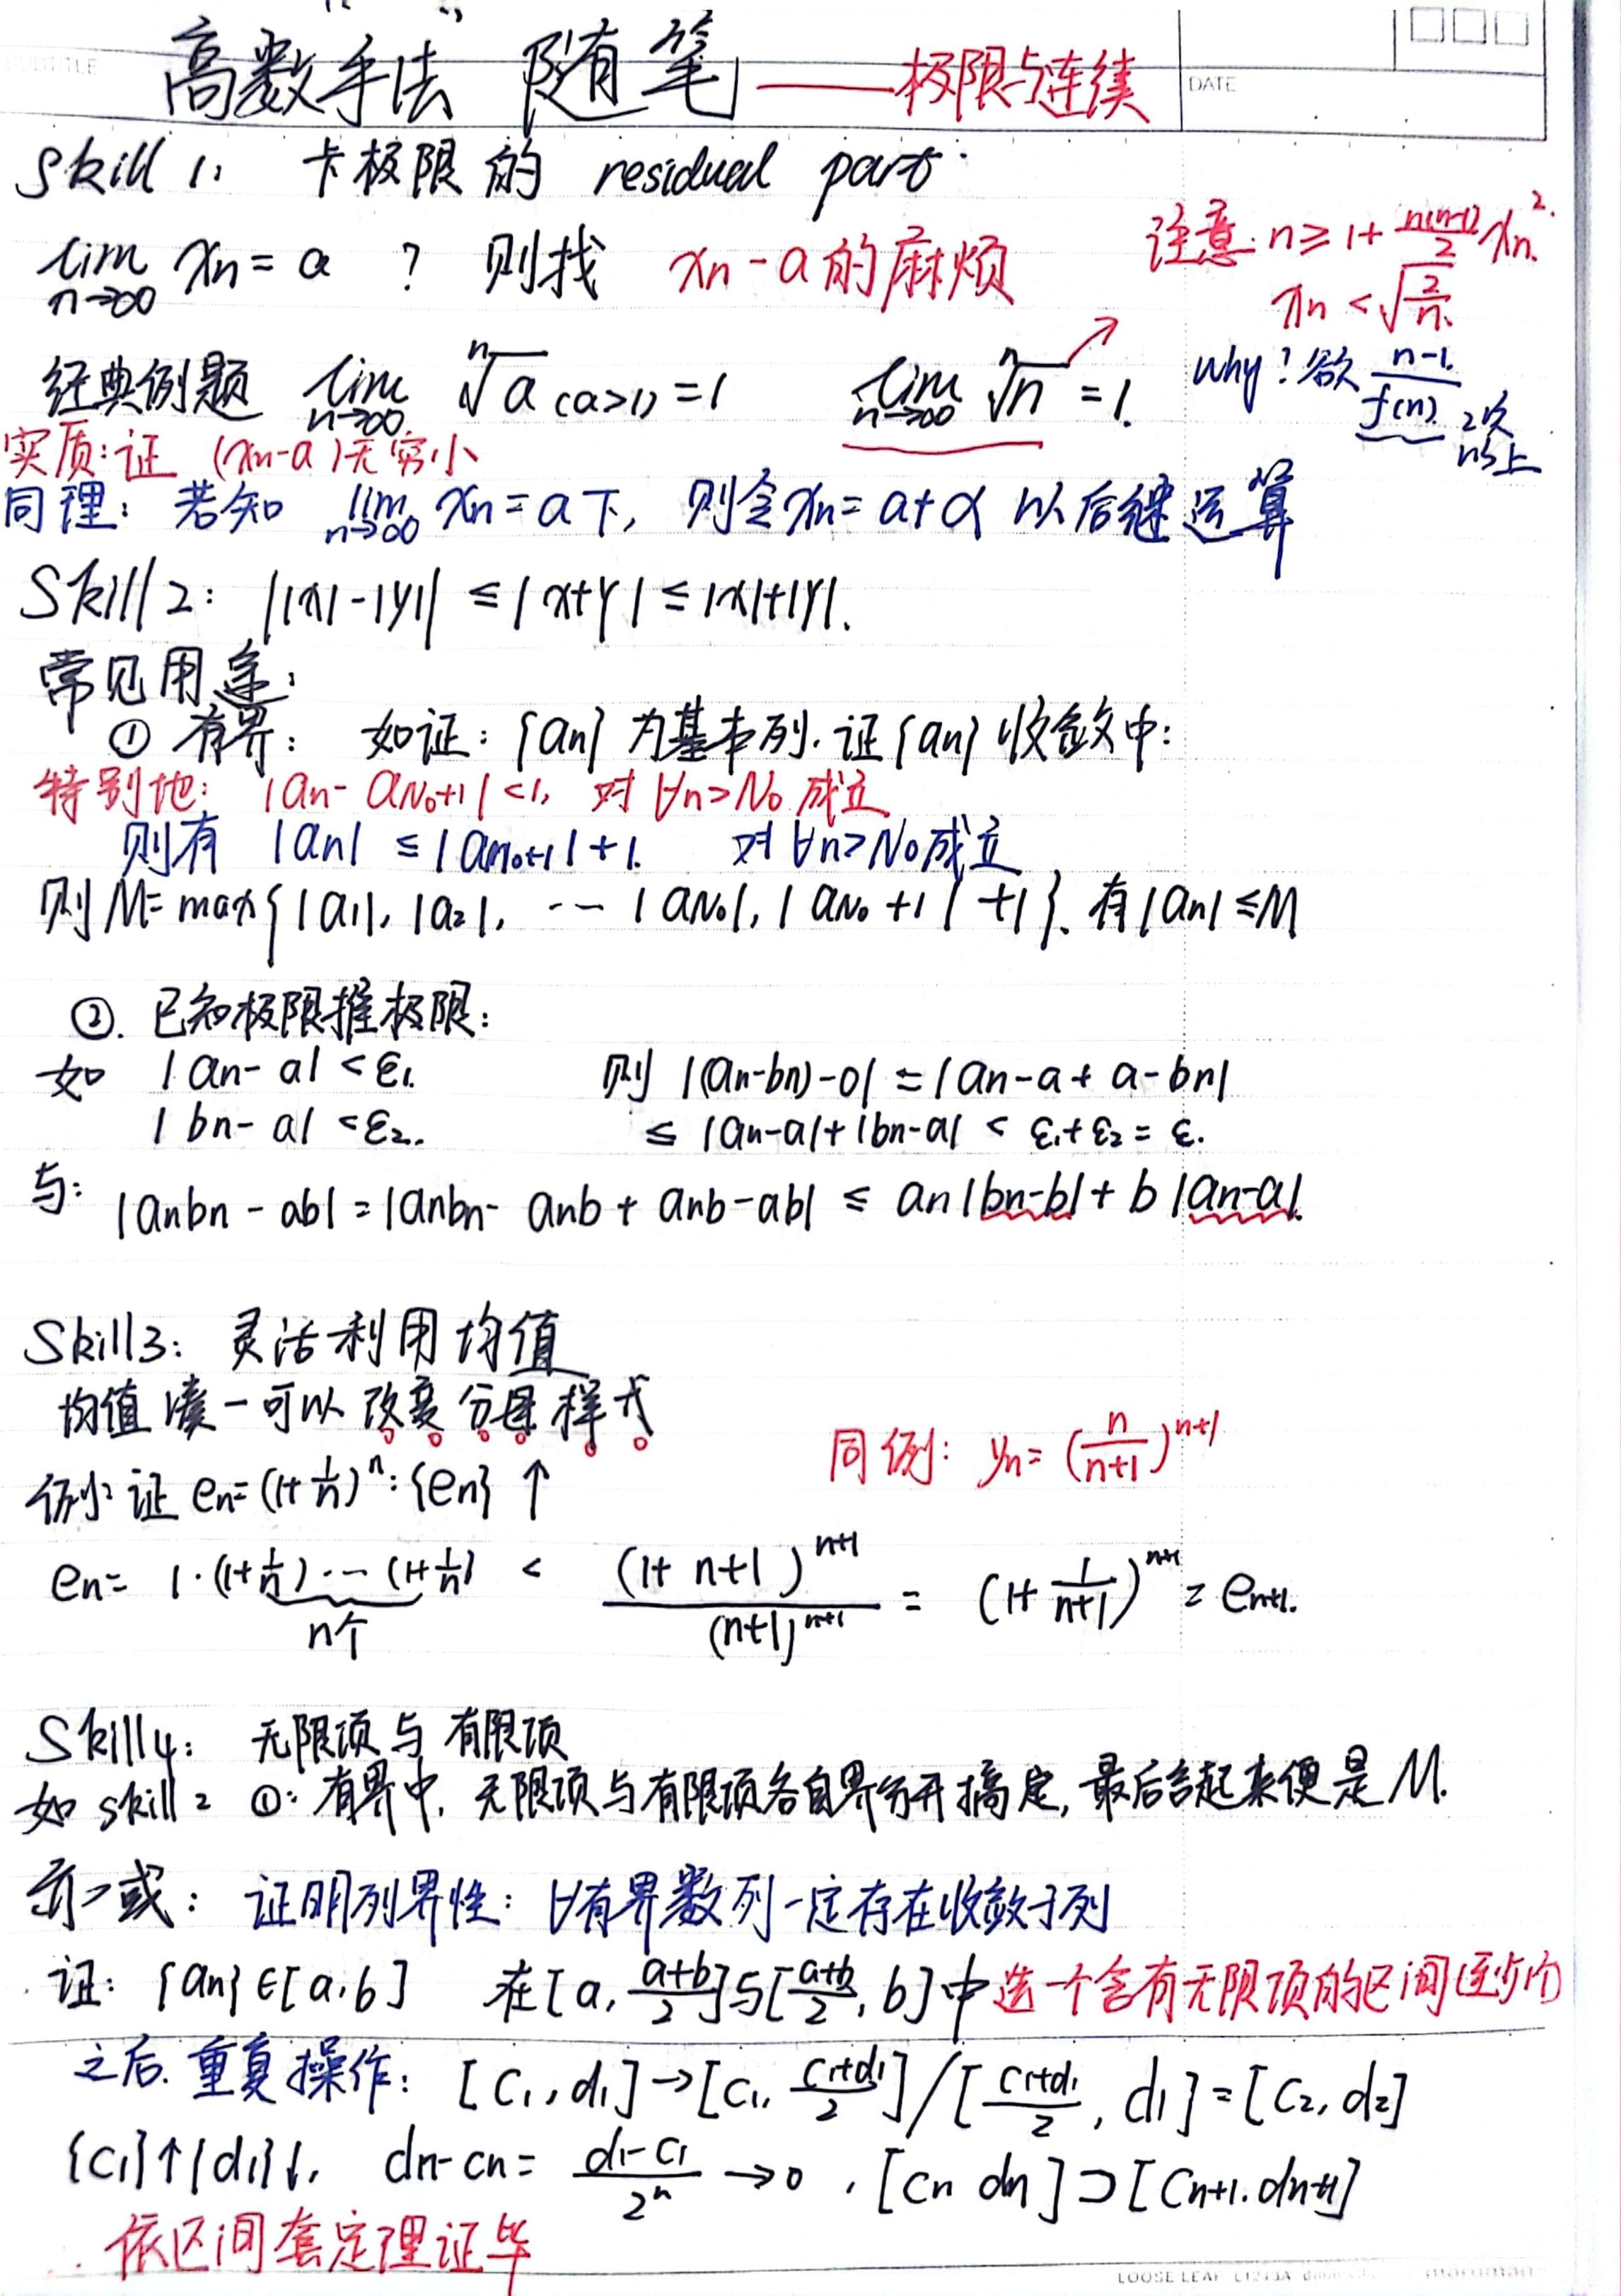 SUBTITLE
DATE
高数手法 随笔 ——极限与连续
Skill 1: 卡极限的 residual part
lim n→∞ xn = a ? 则找 xn - a 的麻烦
注意: n ≥ 1 + n(n-1)/2 xn².
xn < √(2/n).
经典例题 lim n→∞ ⁿ√a (a>1) = 1 lim n→∞ ⁿ√n = 1.
why? 欲 (n-1)/f(n) 2次n以上
实质: 证 (xn-a) 无穷小
同理: 若知 lim n→∞ xn = a 下, 则令 xn = a+α 以后继运算
Skill 2: ||x|-|y|| ≤ |x+y| ≤ |x|+|y|.
常见用途:
① 有界: 如证: {an} 为基本列. 证{an} 收敛中:
特别地: |an - aN₀+1| < 1, 对 ∀n>N₀ 成立
则有 |an| ≤ |aN₀+1| + 1. 对 ∀n>N₀成立
则 M = max{|a₁|, |a₂|, ⋯ |aN₀|, |aN₀+1| +1}. 有|an| ≤ M
②. 已知极限推极限:
如 |an - a| < ε₁. 则 |(an-bn)-0| = |an-a+a-bn|
|bn - a| < ε₂. ≤ |an-a|+|bn-a| < ε₁+ε₂ = ε.
与: |anbn - ab| = |anbn - anb + anb - ab| ≤ an|bn-b| + b|an-a|.
Skill3: 灵活利用均值
均值凑一可以改变分母样式
例: 证 en = (1+1/n)ⁿ: {en} ↑
同例: yn = (n/(n+1))ⁿ⁺¹
en = 1·(1+1/n)⋯(1+1/n) < (1+n+1)ⁿ⁺¹/(n+1)ⁿ⁺¹ = (1+1/(n+1))ⁿ⁺¹ = en+1.
n个
Skill4: 无限项与有限项
如 skill 2 ①: 有界中, 无限项与有限项各自界分开搞定, 最后合起来便是 M.
或: 证明列界性: ∀有界数列一定存在收敛子列
证: {an}∈[a,b] 在[a, (a+b)/2]与[(a+b)/2, b]中选一个含有无限项的区间
之后. 重复操作: [c₁, d₁]→[c₁, (c₁+d₁)/2]/[(c₁+d₁)/2, d₁] = [c₂, d₂]
{c₁}↑{d₁}↓, dn-cn = (d₁-c₁)/2ⁿ → 0, [cn dn]⊃[cn+1. dn+1]
依区间套定理证毕
LOOSE LEAF